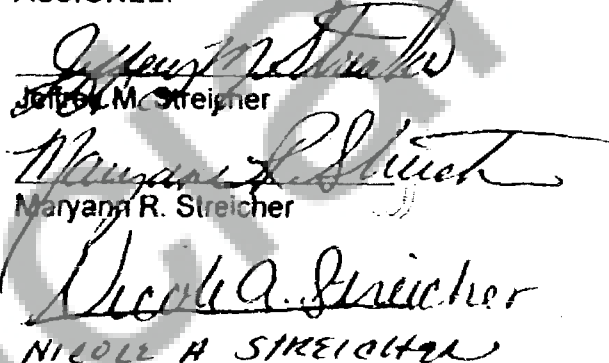 ASSIGNEE:
Jeffrey M. Streicher
Jeffrey M. Streicher
Maryann R. Streicher
Maryann R. Streicher
Nicole A. Streicher
NICOLE A STREICHER